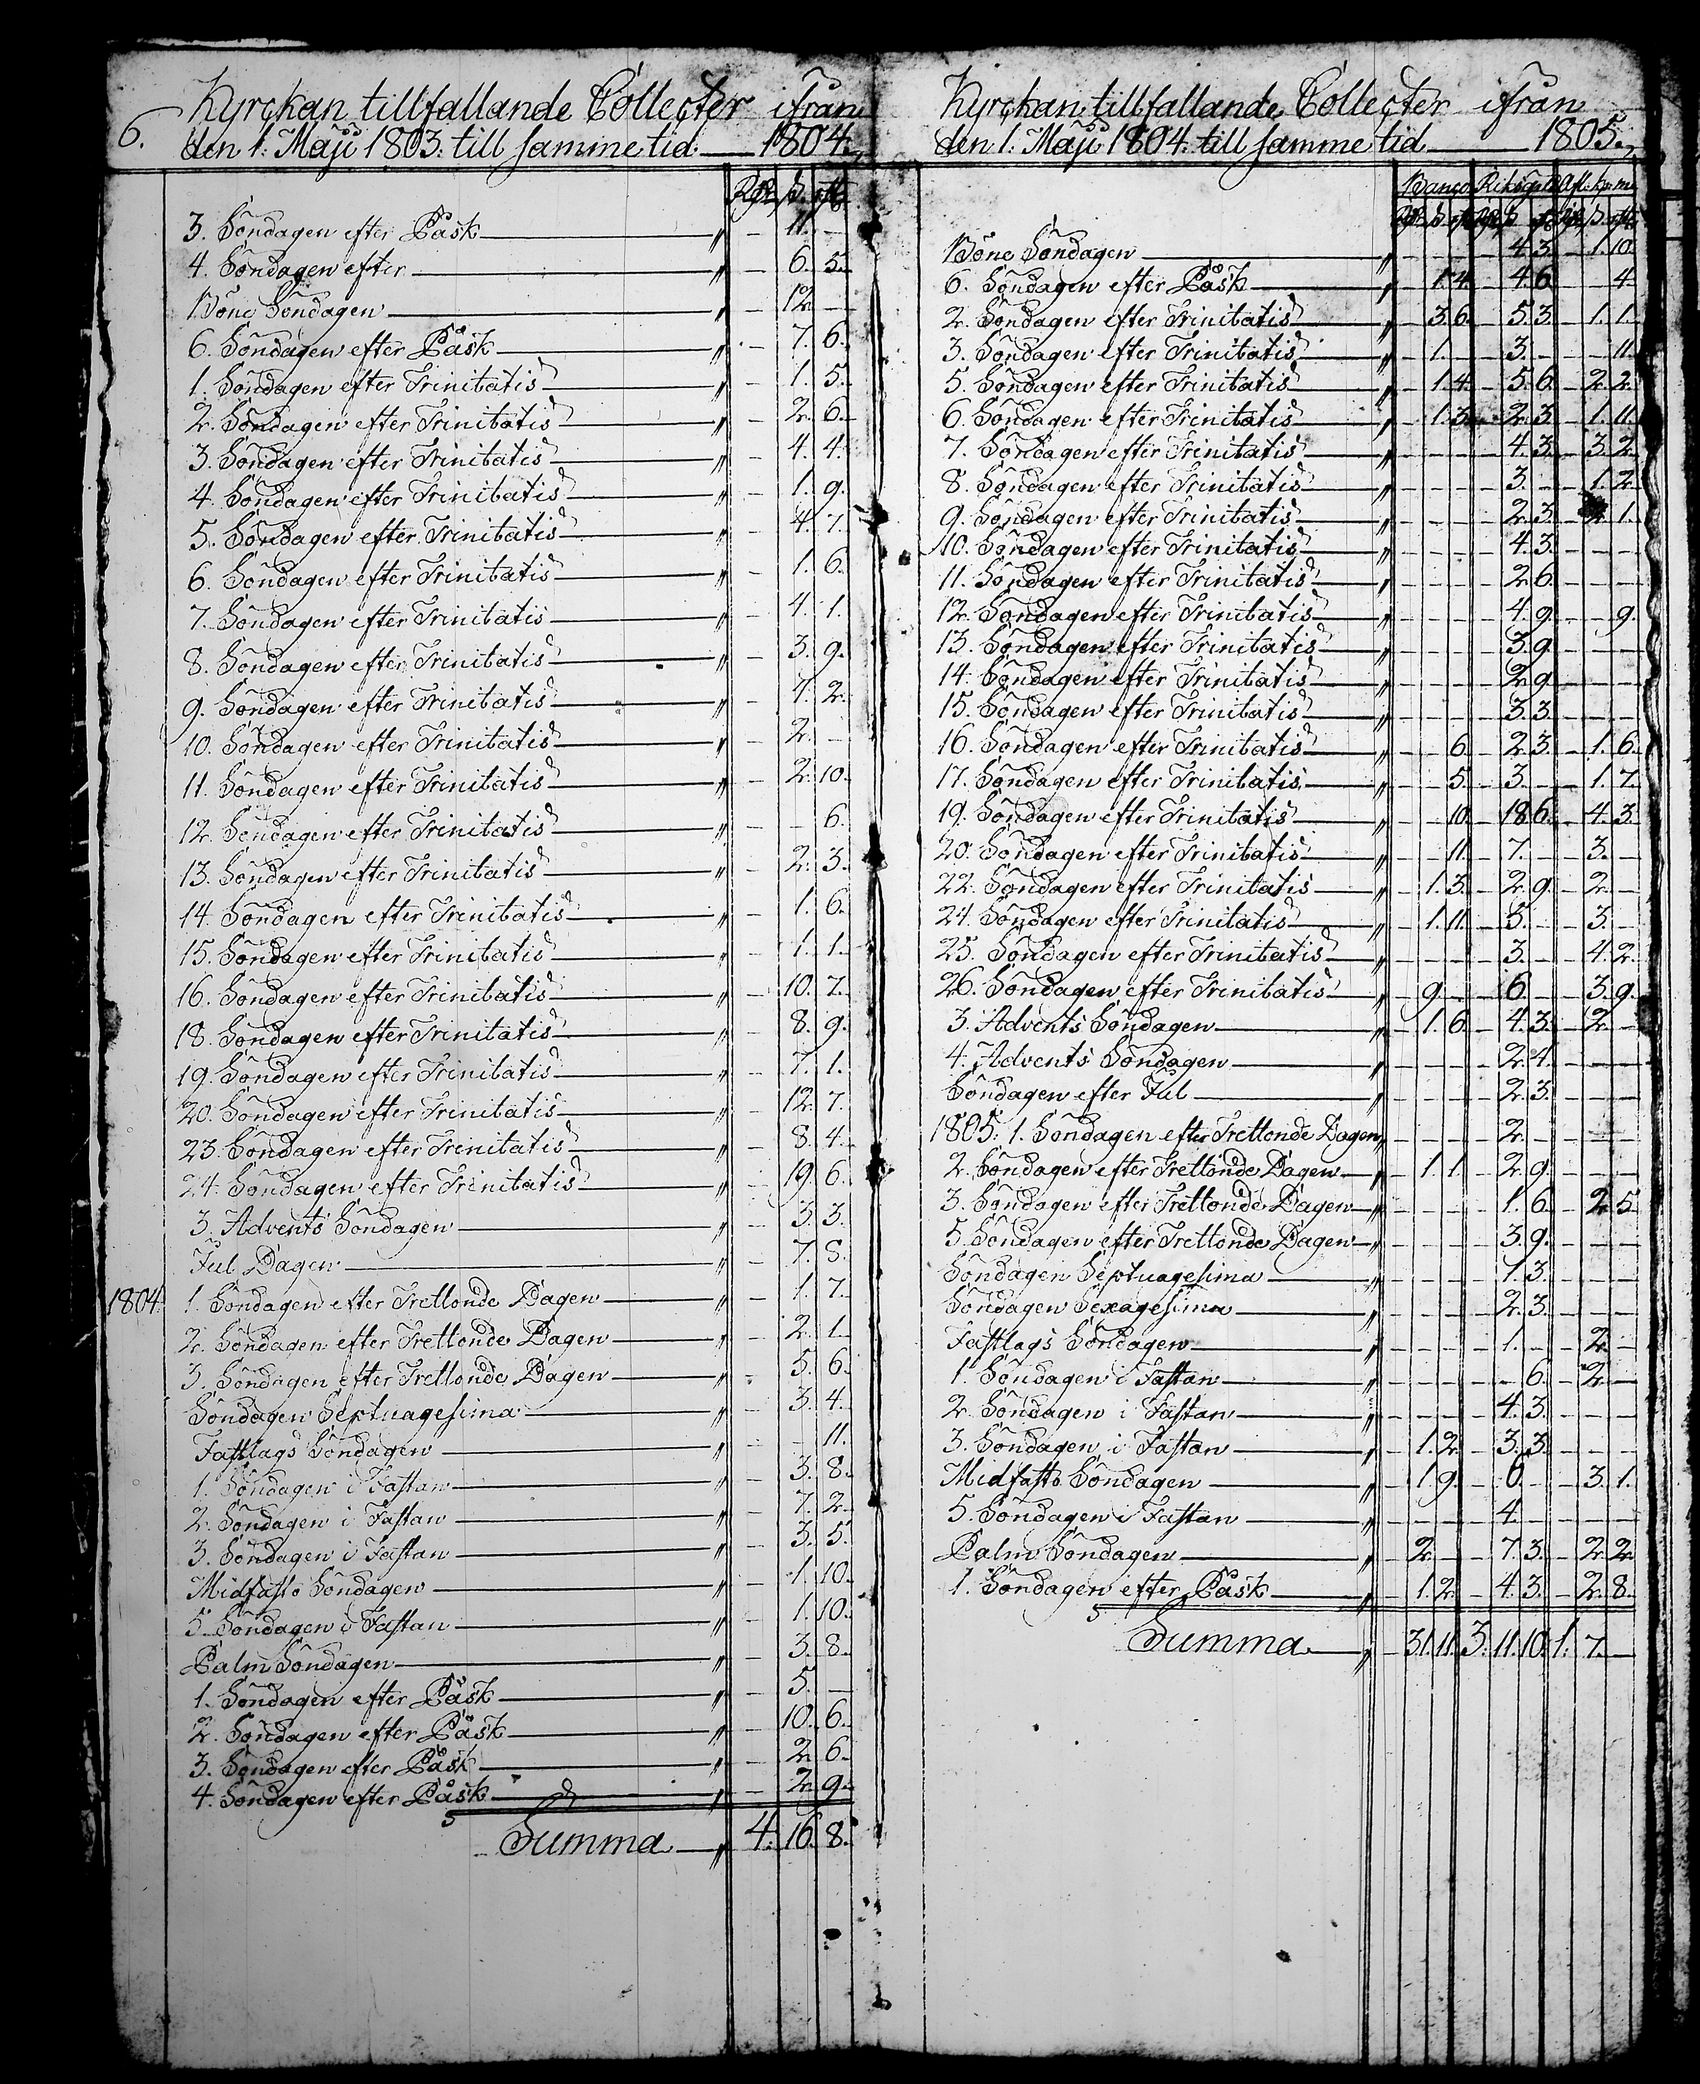 6.
Kyrckan tillfallande Collecter ifrån
den 1. Maji 1803. till samme tid — 1804.
Rdr ß. rst.
3. Söndagen efter Påsk — " — 11. —
4. Söndagen efter — " — 6. 5.
Böne Söndagen — " — 12. —
6. Söndagen efter Påsk — " — 7. 6.
1. Söndagen efter Trinitatis — " — 1. 5.
2. Söndagen efter Trinitatis — " — 2. 6.
3. Söndagen efter Trinitatis — " — 4. 4.
4. Söndagen efter Trinitatis — " — 1. 9.
5. Söndagen efter Trinitatis — " — 4. 7.
6. Söndagen efter Trinitatis — " — 1. 6.
7. Söndagen efter Trinitatis — " — 4. 1.
8. Söndagen efter Trinitatis — " — 3. 9.
9. Söndagen efter Trinitatis — " — 4. 2.
10. Söndagen efter Trinitatis — " — 2. —
11. Söndagen efter Trinitatis — " — 2. 10.
12. Söndagen efter Trinitatis — " — — 6.
13. Söndagen efter Trinitatis — " — 2. 3.
14. Söndagen efter Trinitatis — " — 1. 6.
15. Söndagen efter Trinitatis — " — 1. 1.
16. Söndagen efter Trinitatis — " — 10. 7.
18. Söndagen efter Trinitatis — " — 8. 9.
19. Söndagen efter Trinitatis — " — 7. 1.
20. Söndagen efter Trinitatis — " — 12. 7.
23. Söndagen efter Trinitatis — " — 8. 4.
24. Söndagen efter Trinitatis — " — 19. 6.
3. Advents Söndagen — " — 3. 3.
Jul Dagen — " — 7. 8.
1804. 1. Söndagen efter Trettonde Dagen — " — 1. 7.
2. Söndagen efter Trettonde Dagen — " — 2. 1.
3. Söndagen efter Trettonde Dagen — " — 5. 6.
Söndagen Septuagesima — " — 3. 4.
Fastlags Söndagen — " — — 11.
1. Söndagen i Fastan — " — 3. 8.
2. Söndagen i Fastan — " — 7. 2.
3. Söndagen i Fastan — " — 3. 5.
Midfasto Söndagen — " — 1. 10.
5. Söndagen i Fastan — " — 1. 10.
Palm Söndagen — " — 3. 8.
1. Söndagen efter Påsk — " — 5. —
2. Söndagen efter Påsk — " — 10. 6.
3. Söndagen efter Påsk — " — 2. 6.
4. Söndagen efter Påsk — " — 2. 9.
Summa — " 4. 16. 8.
Kyrckan tillfallande Collecter ifrån
den 1. Maji 1804. till samme tid — 1805.
Banco Riksgds
Böne Söndagen — " — — — — 4. 3. — 1. 10.
6. Söndagen efter Påsk — " — 1. 4. — 4. 6. — — 4.
2. Söndagen efter Trinitatis — " — 3. 6. — 5. 3. — 1. 1.
3. Söndagen efter Trinitatis — " — 1. — — 3. — — — 11.
5. Söndagen efter Trinitatis — " — 1. 4. — 5. 6. — 2. 2.
6. Söndagen efter Trinitatis — " — 1. 3. — 2. 3. — 1. 11.
7. Söndagen efter Trinitatis — " — — — — 4. 3. — 3. 2.
8. Söndagen efter Trinitatis — " — — — — 3. — — 1. 2.
9. Söndagen efter Trinitatis — " — — — — 2. 3. — 1.
10. Söndagen efter Trinitatis — " — — — — 4. 3. — — —
11. Söndagen efter Trinitatis — " — — — — 2. 6. — — —
12. Söndagen efter Trinitatis — " — — — — 4. 9. — — 9.
13. Söndagen efter Trinitatis — " — — — — 3. 9. — — —
14. Söndagen efter Trinitatis — " — — — — 2. 9. — — —
15. Söndagen efter Trinitatis — " — — — — 3. 3. — — —
16. Söndagen efter Trinitatis — " — — 6. — 2. 3. — 1. 6.
17. Söndagen efter Trinitatis — " — — 5. — 3. — — 1. 7.
19. Söndagen efter Trinitatis — " — — 10. — 18. 6. — 4. 3.
20. Söndagen efter Trinitatis — " — — 11. — 7. — — 3. —
22. Söndagen efter Trinitatis — " — 1. 3. — 2. 9. — 2. —
24. Söndagen efter Trinitatis — " — 1. 11. — 5. — — 3. —
25. Söndagen efter Trinitatis — " — — — — 3. — — 4. 2.
26. Söndagen efter Trinitatis — " — 9. — — 6. — — 3. 9.
3. Advents Söndagen — " — 1. 6. — 4. 3. — 2. —
4. Advents Söndagen — " — — — — 2. 4. — — —
Söndagen efter Jul — " — — — — 2. 3. — — —
1805. 1. Söndagen efter Trettonde Dagen " — — — — 2. — — — —
2. Söndagen efter Trettonde Dagen — " — 1. 1. — 2. 9. — — —
3. Söndagen efter Trettonde Dagen — " — — — — 1. 6. — 2. 5.
5. Söndagen efter Trettonde Dagen — " — — — — 3. 9. — — —
Söndagen Septuagesima — " — — — — 1. 3. — — —
Söndagen Sexagesima — " — — — — 2. 3. — — —
Fastlags Söndagen — " — — — — 1. — — 2. —
1. Söndagen i Fastan — " — — — — — 6. — 2. —
2. Söndagen i Fastan — " — — — — 4. 3. — — —
3. Söndagen i Fastan — " — 1. 2. — 3. 3. — — —
Midfasto Söndagen — " — 1. 9. — 6. — — 3. 1.
5. Söndagen i Fastan — " — — — — 4. — — — —
Palm Söndagen — " — 2. — — 7. 3. — 2. 2.
1. Söndagen efter Påsk — " — 1. 2. — 4. 3. — 2. 8.
Summa — " — 31. 11. 3. 11. 10. 1. 7. —